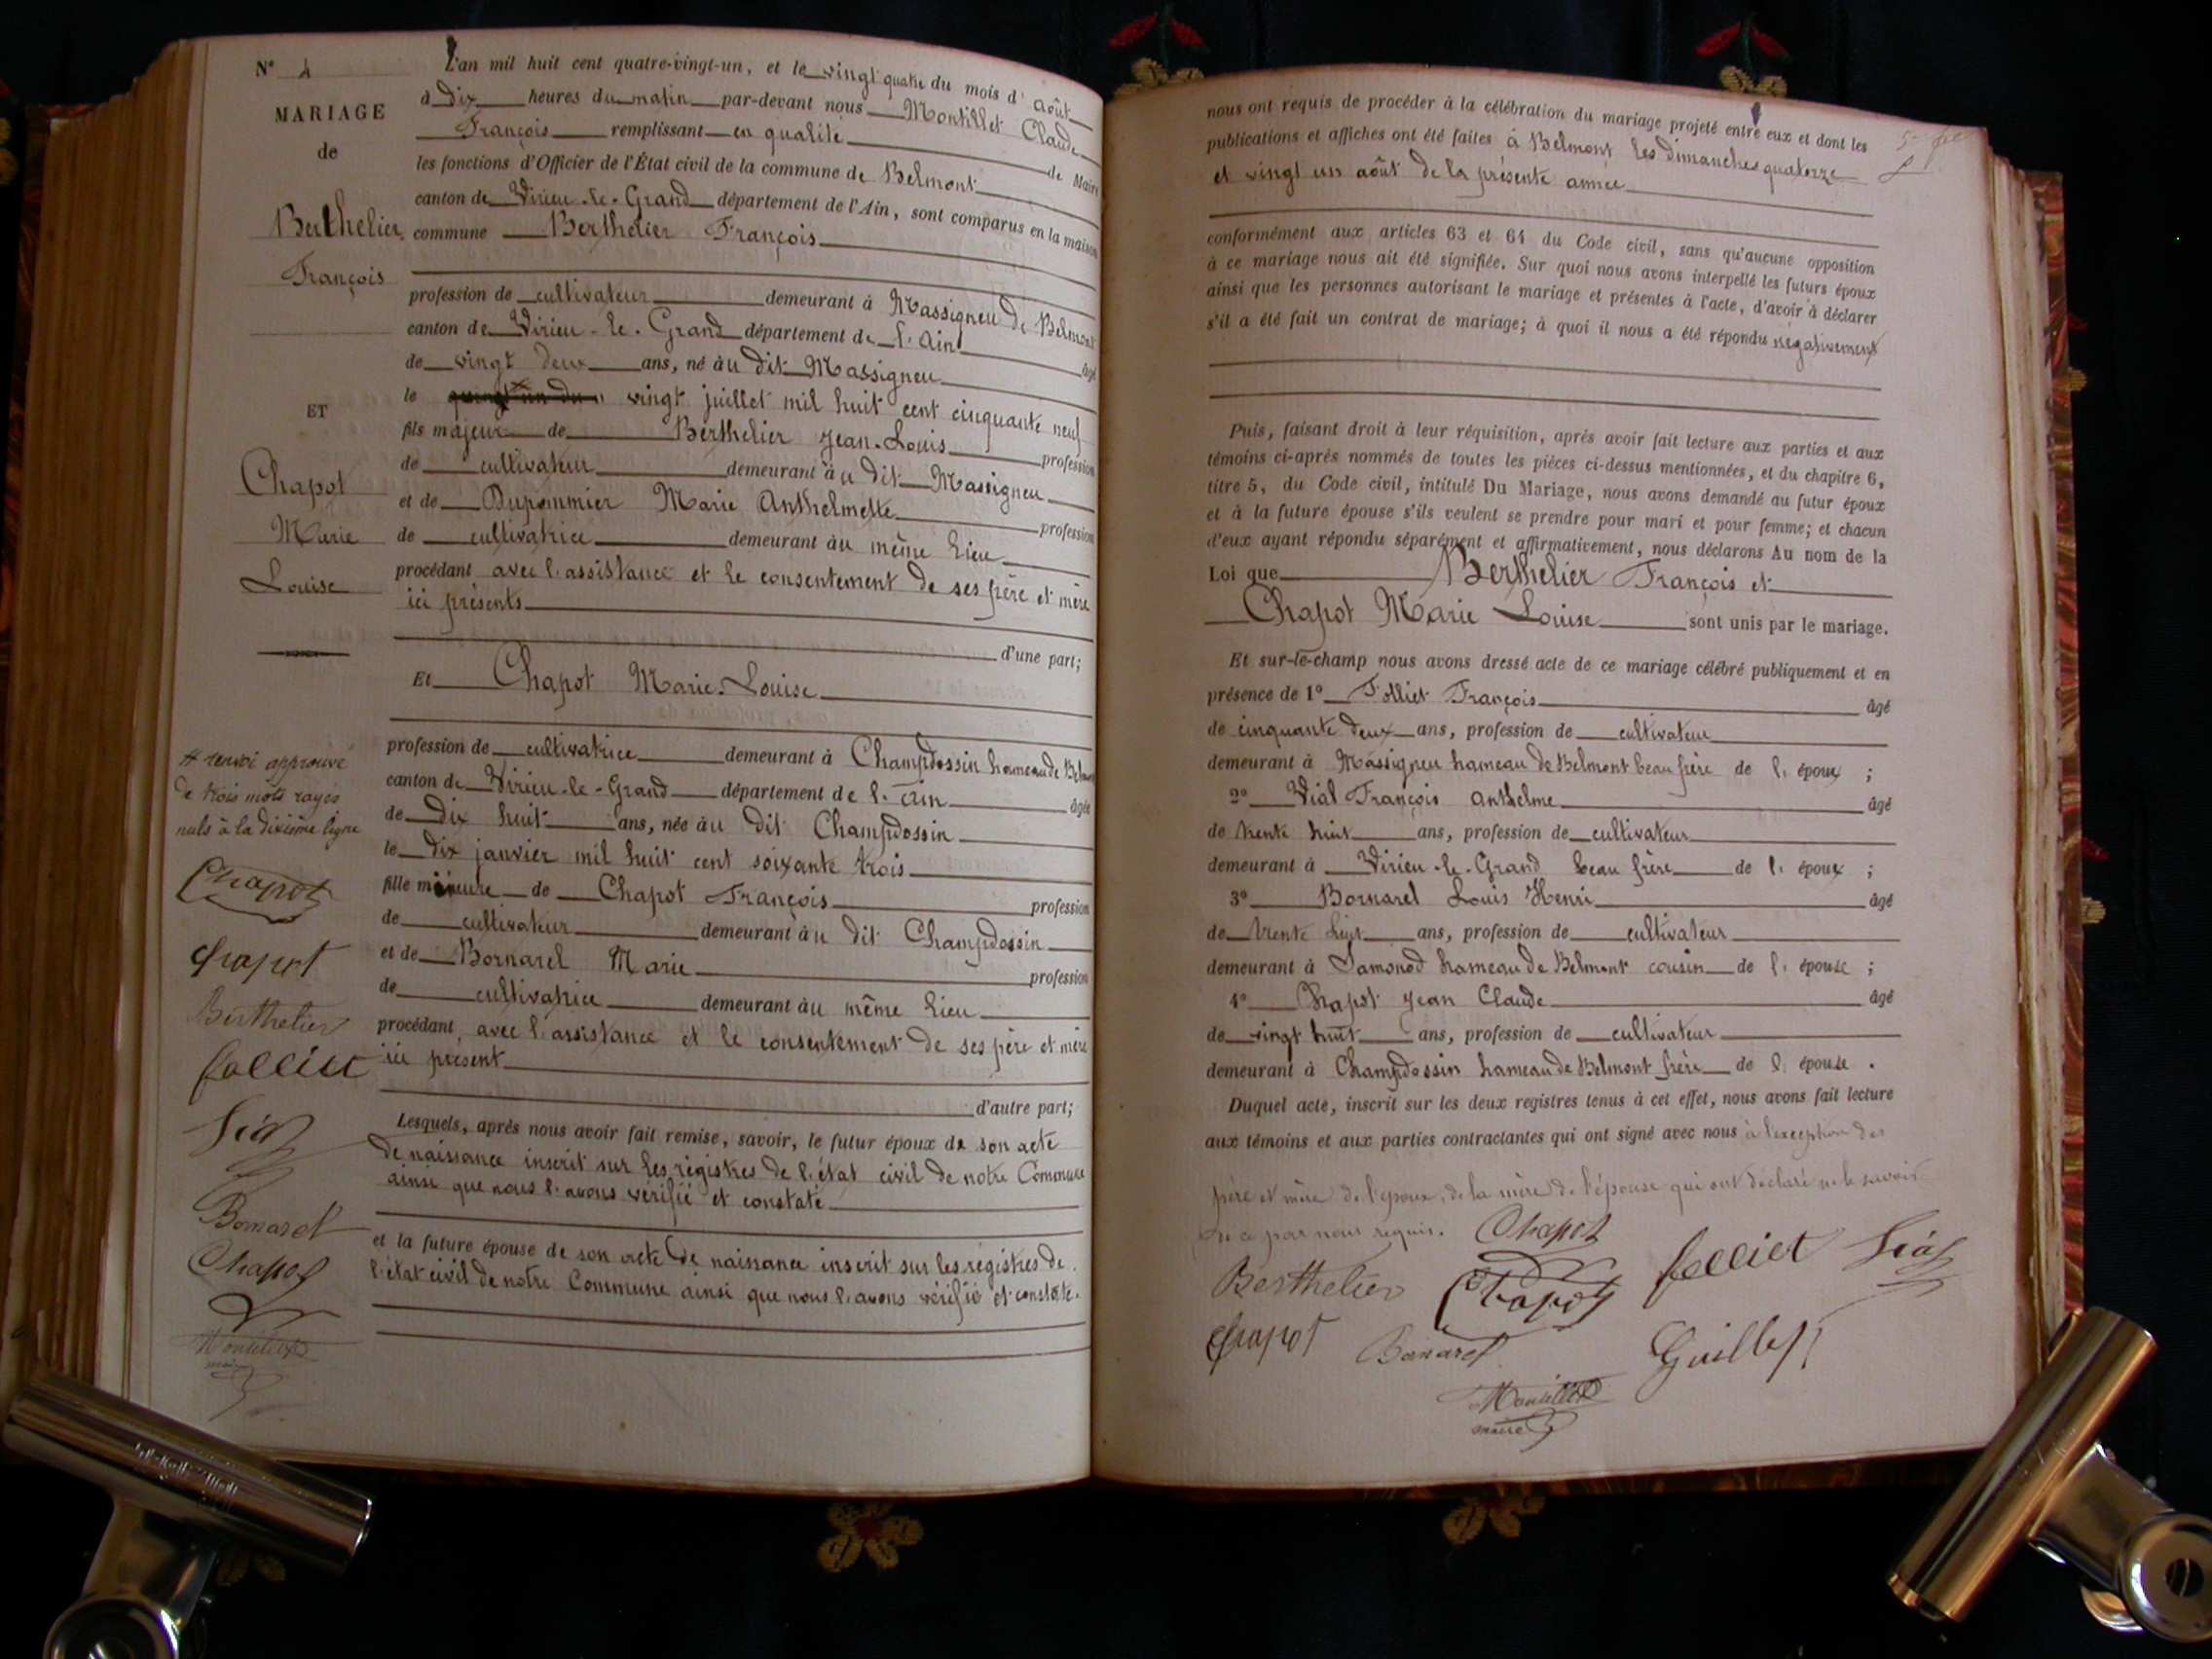 N° 4
MARIAGE
de
Berthelier
François
ET
Chapot
Marie
Louise
L'an mil huit cent quatre-vingt-un, et le vingt quatre du mois d'Août
à dix heures du matin par-devant nous Montillet Claude
François remplissant en qualité de Maire
les fonctions d'Officier de l'État civil de la commune de Belmont
canton de Virieu-le-Grand département de l'Ain, sont comparus en la maison
commune Berthelier François
profession de cultivateur demeurant à Massigneu de Belmont
canton de Virieu-le-Grand département de l'Ain âgé
de vingt deux ans, né au dit Massigneu
le vingt juillet mil huit cent cinquante neuf
fils majeur de Berthelier Jean-Louis profession
de cultivateur demeurant au dit Massigneu
et de Dupommier Marie Anthelmette profession
de cultivatrice demeurant au même lieu
procédant avec l'assistance et le consentement de ses père et mère
ici présents
d'une part;
Et Chapot Marie-Louise
profession de cultivatrice demeurant à Champdossin hameau de Belmont
canton de Virieu-le-Grand département de l'Ain âgée
de dix huit ans, née au dit Champdossin
le dix janvier mil huit cent soixante trois
fille mineure de Chapot François profession
de cultivateur demeurant au dit Champdossin
et de Bornarel Marie profession
de cultivatrice demeurant au même lieu
procédant avec l'assistance et le consentement de ses père et mère
ici présent
d'autre part;
Lesquels, après nous avoir fait remise, savoir, le futur époux de son acte
de naissance inscrit sur les registres de l'état civil de notre Commune
ainsi que nous l'avons vérifié et constaté
et la future épouse de son acte de naissance inscrit sur les registres de
l'état civil de notre Commune ainsi que nous l'avons vérifié et constaté.
renvoi approuvé
de trois mots rayés
nuls à la dixième ligne
Chapot
Chapot
Berthelier
folliet
Vial
Bornarel
Chapot
Montillet
maire
nous ont requis de procéder à la célébration du mariage projeté entre eux et dont les
publications et affiches ont été faites à Belmont les dimanches quatorze
et vingt un août de la présente année
conformément aux articles 63 et 64 du Code civil, sans qu'aucune opposition
à ce mariage nous ait été signifiée. Sur quoi nous avons interpellé les futurs époux
ainsi que les personnes autorisant le mariage et présentes à l'acte, d'avoir à déclarer
s'il a été fait un contrat de mariage; à quoi il nous a été répondu négativement
Puis, faisant droit à leur réquisition, après avoir fait lecture aux parties et aux
témoins ci-après nommés de toutes les pièces ci-dessus mentionnées, et du chapitre 6,
titre 5, du Code civil, intitulé Du Mariage, nous avons demandé au futur époux
et à la future épouse s'ils veulent se prendre pour mari et pour femme; et chacun
d'eux ayant répondu séparément et affirmativement, nous déclarons Au nom de la
Loi que Berthelier François et
Chapot Marie Louise sont unis par le mariage.
Et sur-le-champ nous avons dressé acte de ce mariage célébré publiquement et en
présence de 1° Folliet François âgé
de cinquante deux ans, profession de cultivateur
demeurant à Massigneu hameau de Belmont beau frère de l'époux ;
2° Vial François Anthelme âgé
de trente huit ans, profession de cultivateur
demeurant à Virieu-le-Grand beau frère de l'époux ;
3° Bornarel Louis Henri âgé
de trente huit ans, profession de cultivateur
demeurant à Samonod hameau de Belmont cousin de l'épouse ;
4° Chapot Jean Claude âgé
de vingt huit ans, profession de cultivateur
demeurant à Champdossin hameau de Belmont frère de l'épouse .
Duquel acte, inscrit sur les deux registres tenus à cet effet, nous avons fait lecture
aux témoins et aux parties contractantes qui ont signé avec nous à l'exception des
père et mère de l'époux, de la mère de l'épouse qui ont déclaré ne le savoir
de ce par nous requis. Chapot
Berthelier Chapot folliet Vial
Chapot Bornarel Guillet
Montillet
maire